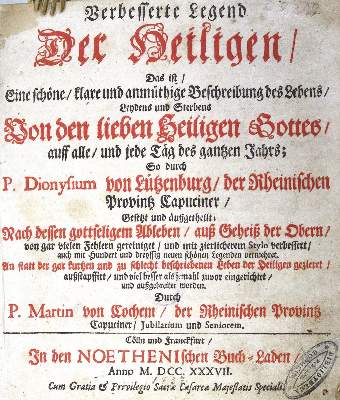 Verbesserte Legend
Der Heiligen /
Das ist /
Eine schöne / klare und anmüthige Beschreibung des Lebens /
Leydens und Sterbens
Von den lieben Heiligen Gottes /
auff alle / und jede Täg des gantzen Jahrs;
So durch
P. Dionysium von Lützenburg / der Rheinischen
Provintz Capuciner /
Gesetzt und außgetheilt:
Nach dessen gottseligem Ableben / auß Geheiß der Obern /
von gar vielen Fehlern gereiniget / und mit zierlicherem Stylo verbessert /
auch mit Hundert und dreyssig neuen schönen Legenden vermehret.
An statt der gar kurtzen und zu schlecht beschriebenen Leben der Heiligen gezieret /
außstaffirt / und viel besser als jemahl zuvor eingerichtet /
und außgebreitet worden.
Durch
P. Martin von Cochem / der Rheinischen Provintz
Capuciner / Jubilarium und Seniorem.
Cölln und Franckfurt /
In den NOETHENischen Buch-Laden /
Anno M. DCC. XXXVII.
Cum Gratia & Privilegio Sacræ Cæsareæ Majestatis Speciali.